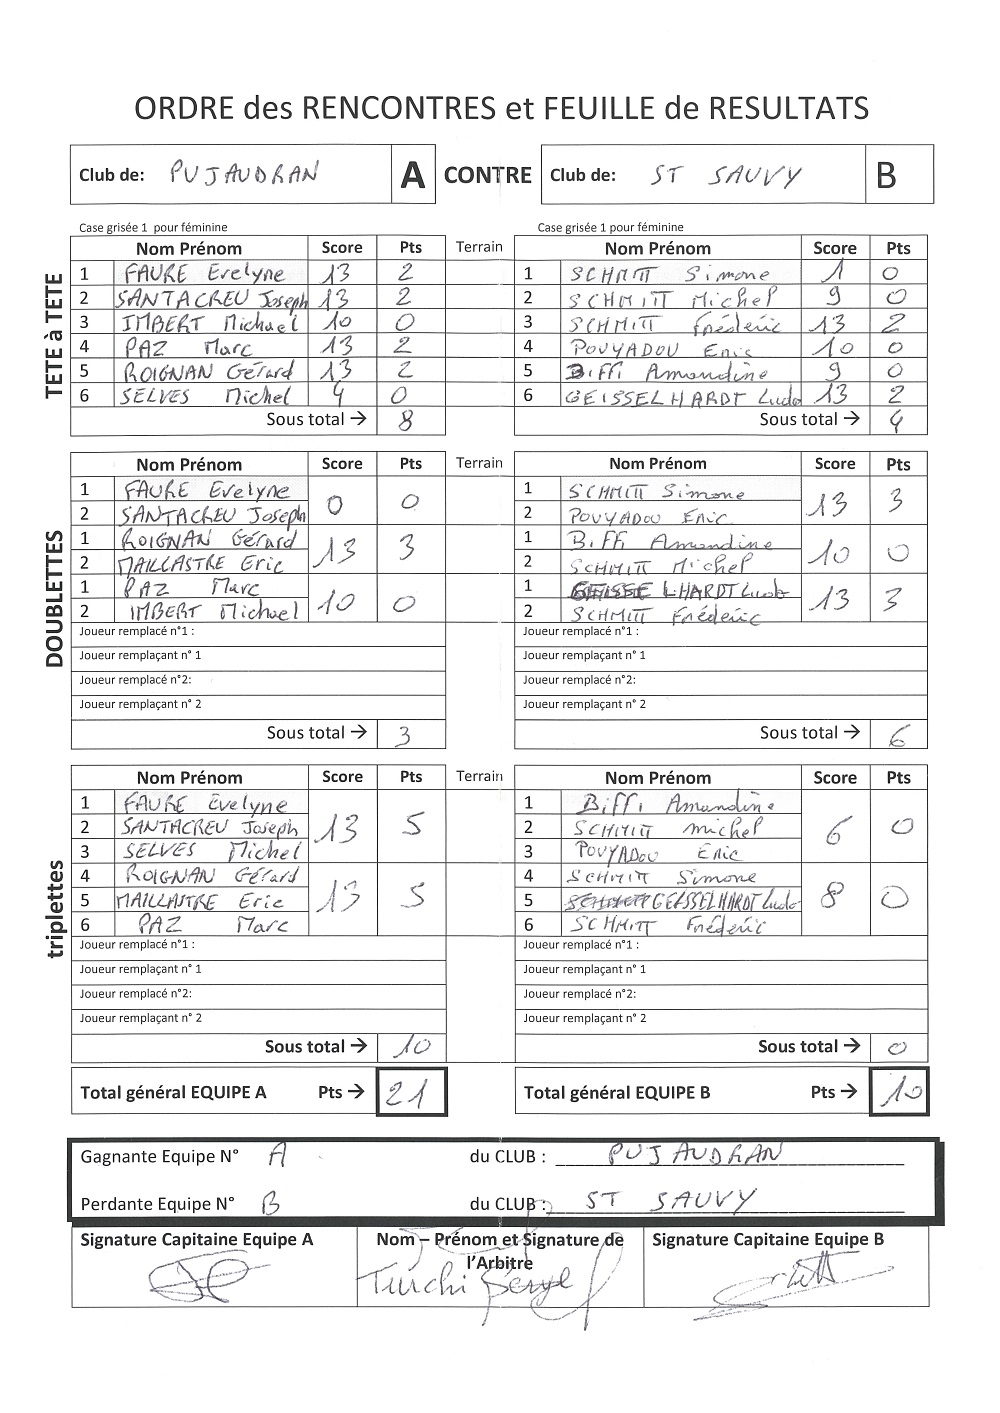 ORDRE des RENCONTRES et FEUILLE de RESULTATS
Club de: PUJAUDRAN A CONTRE Club de: ST SAUVY B
Case grisée 1 pour féminine Case grisée 1 pour féminine
TETE à TETE
Nom Prénom Score Pts Terrain Nom Prénom Score Pts
1 FAURE Evelyne 13 2 1 SCHMITT Simone 1 0
2 SANTACREU Joseph 13 2 2 SCHMITT Michel 9 0
3 IMBERT Michael 10 0 3 SCHMITT Frédéric 13 2
4 PAZ Marc 13 2 4 POUYADOU Eric 10 0
5 ROIGNAN Gérard 13 2 5 BIFFI Amandine 9 0
6 SELVES Michel 4 0 6 GEISSELHARDT Ludo 13 2
Sous total → 8 Sous total → 4
DOUBLETTES
Nom Prénom Score Pts Terrain Nom Prénom Score Pts
1 FAURE Evelyne 1 SCHMITT Simone
0 0 13 3
2 SANTACREU Joseph 2 POUYADOU Eric
1 ROIGNAN Gérard 1 BIFFI Amandine
13 3 10 0
2 MAILLASTRE Eric 2 SCHMITT Michel
1 PAZ Marc 1 GEISSELHARDT Ludo
10 0 13 3
2 IMBERT Michael 2 SCHMITT Frédéric
Joueur remplacé n°1 : Joueur remplacé n°1 :
Joueur remplaçant n° 1 Joueur remplaçant n° 1
Joueur remplacé n°2: Joueur remplacé n°2:
Joueur remplaçant n° 2 Joueur remplaçant n° 2
Sous total → 3 Sous total → 6
triplettes
Nom Prénom Score Pts Terrain Nom Prénom Score Pts
1 FAURE Evelyne 1 BIFFI Amandine
2 SANTACREU Joseph 13 5 2 SCHMITT michel 6 0
3 SELVES Michel 3 POUYADOU Eric
4 ROIGNAN Gérard 4 SCHMITT Simone
5 MAILLASTRE Eric 13 5 5 GEISSELHARDT Ludo 8 0
6 PAZ Marc 6 SCHMITT Frédéric
Joueur remplacé n°1 : Joueur remplacé n°1 :
Joueur remplaçant n° 1 Joueur remplaçant n° 1
Joueur remplacé n°2: Joueur remplacé n°2:
Joueur remplaçant n° 2 Joueur remplaçant n° 2
Sous total → 10 Sous total → 0
Total général EQUIPE A Pts → 21 Total général EQUIPE B Pts → 10
Gagnante Equipe N° A du CLUB : PUJAUDRAN
Perdante Equipe N° B du CLUB : ST SAUVY
Signature Capitaine Equipe A Nom – Prénom et Signature de l'Arbitre Signature Capitaine Equipe B
Turchi